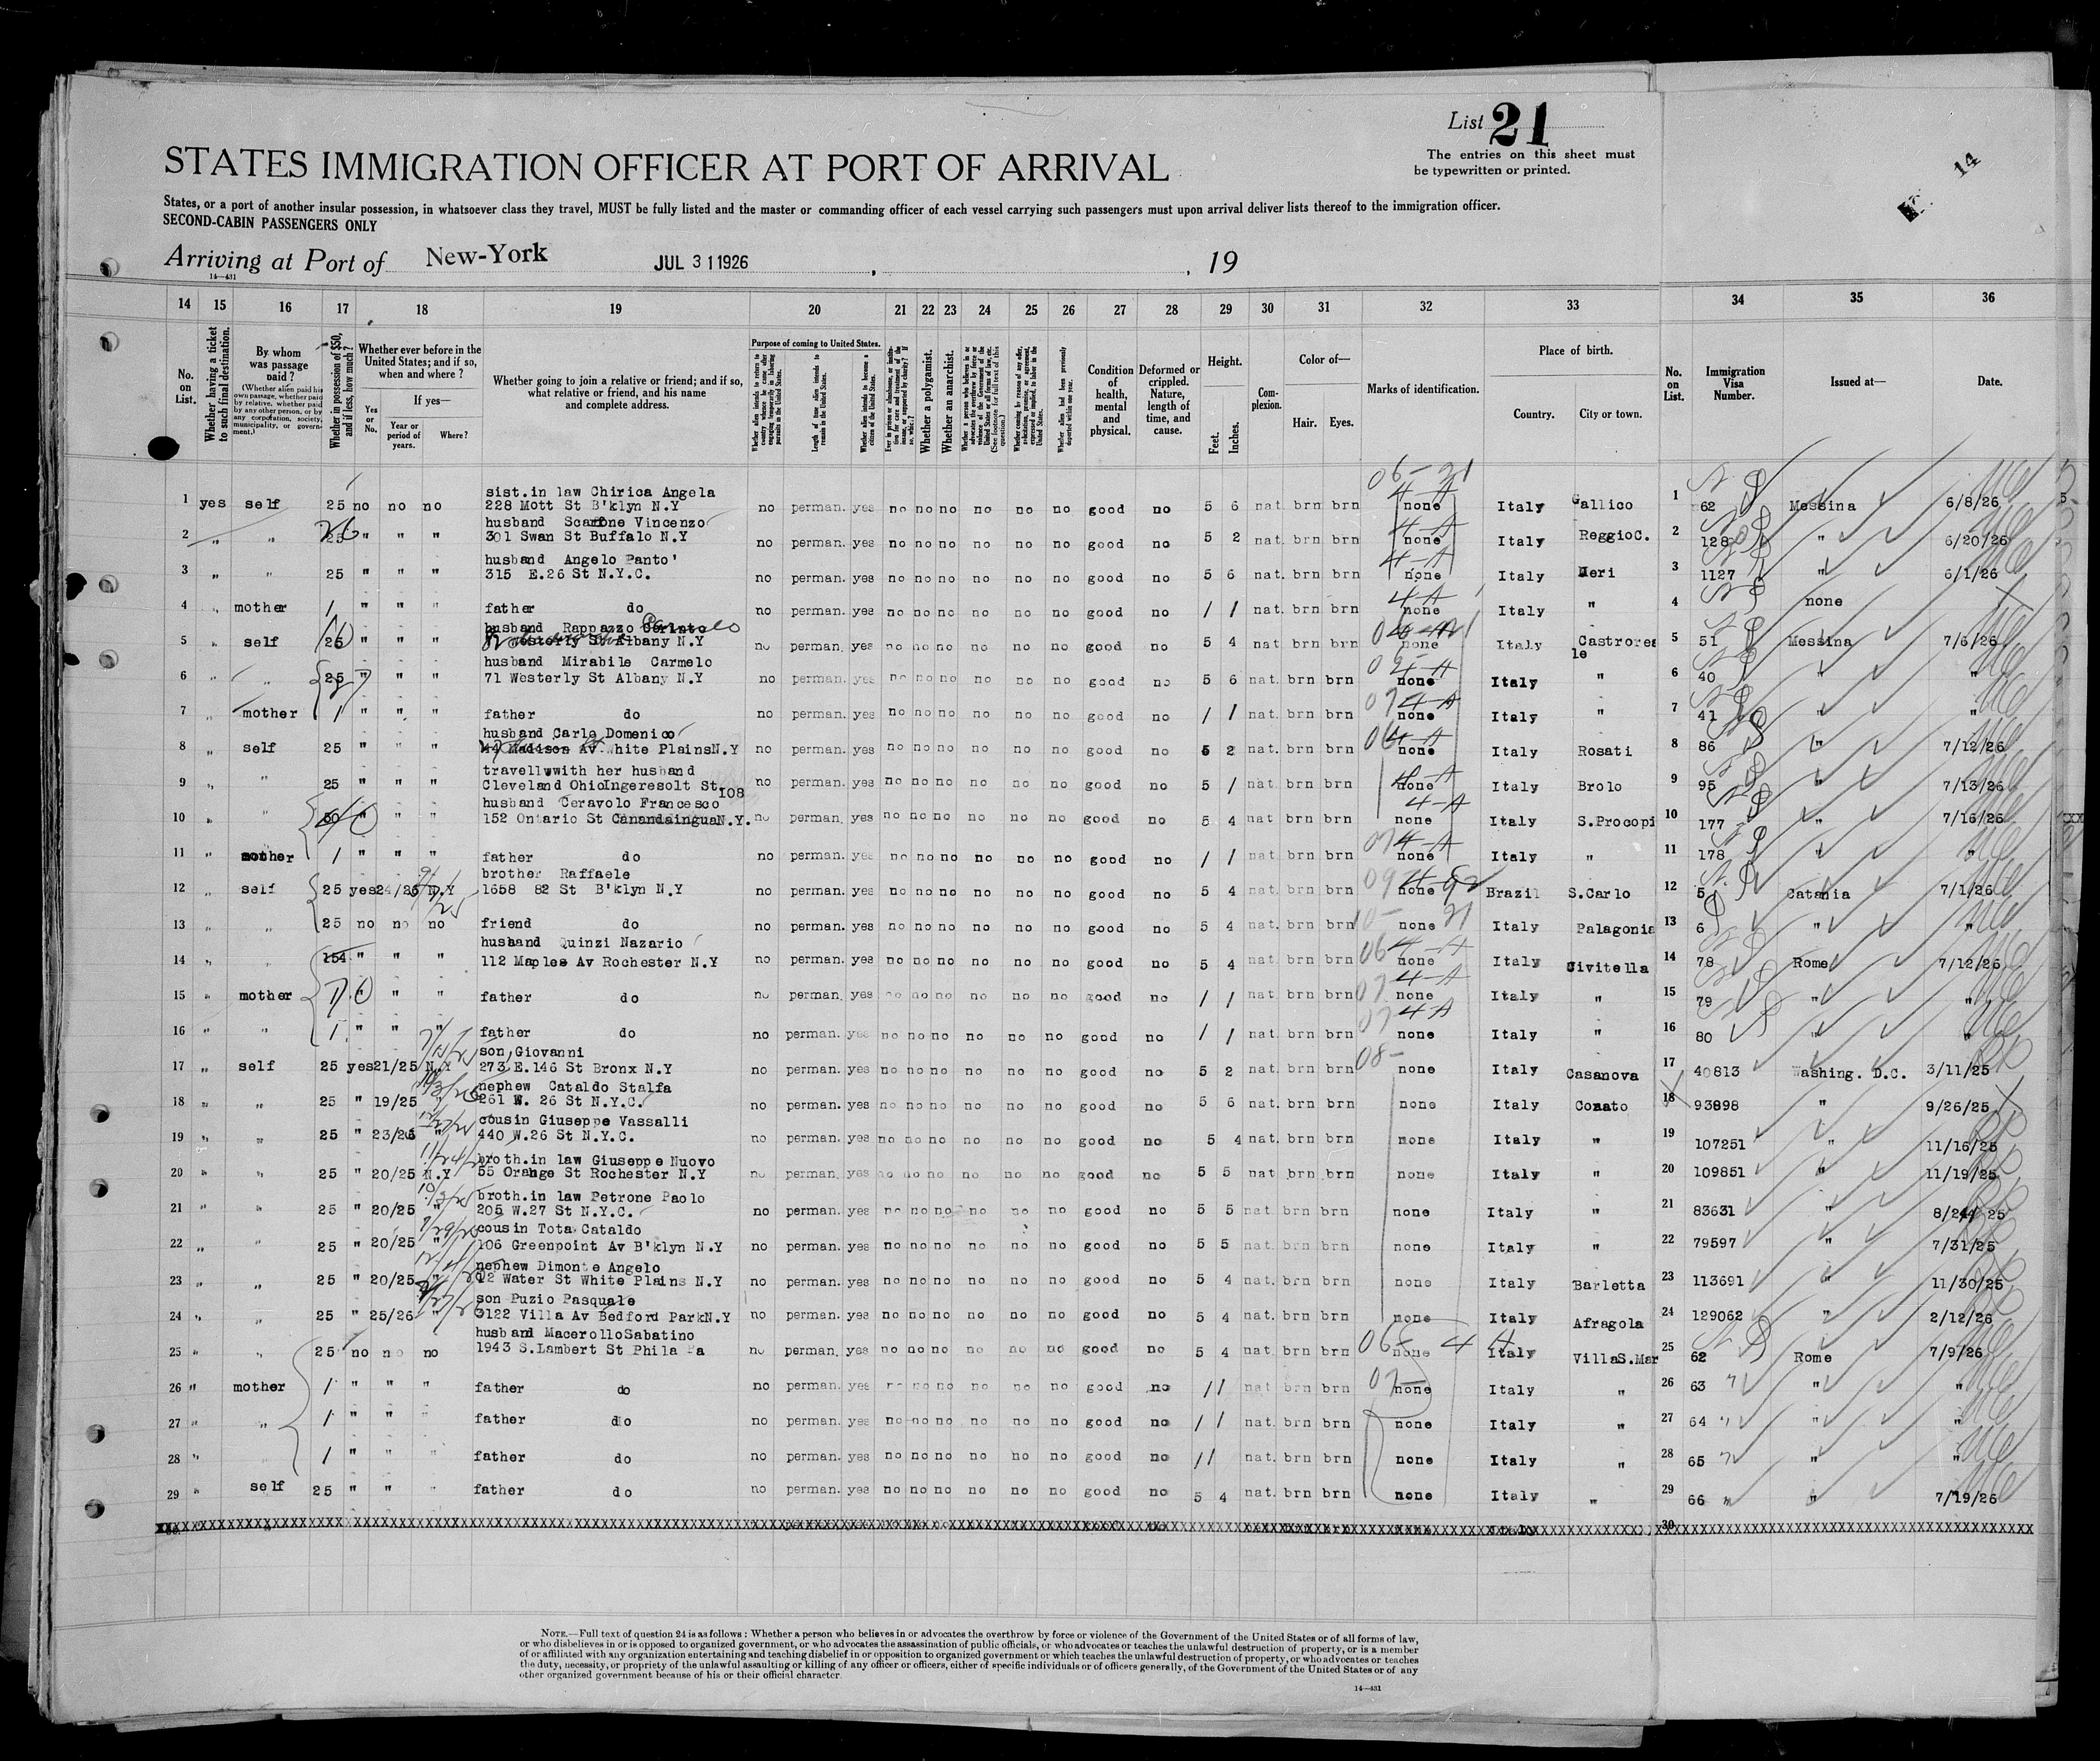 List 21
The entries on this sheet must
be typewritten or printed.
14
STATES IMMIGRATION OFFICER AT PORT OF ARRIVAL
States, or a port of another insular possession, in whatsoever class they travel, MUST be fully listed and the master or commanding officer of each vessel carrying such passengers must upon arrival deliver lists thereof to the immigration officer.
SECOND-CABIN PASSENGERS ONLY
Arriving at Port of New-York JUL 31 1926 , 19
14—431
14 15 16 17 18 19 20 21 22 23 24 25 26 27 28 29 30 31 32 33 34 35 36
No. on List.
Whether having a ticket to such final destination.
By whom was passage paid?
(Whether alien paid his own passage, whether paid by relative, whether paid by any other person, or by any corporation, society, municipality, or government.)
Whether in possession of $50, and if less, how much?
Whether ever before in the United States; and if so, when and where?
Yes or No.
If yes—
Year or period of years.
Where?
Whether going to join a relative or friend; and if so, what relative or friend, and his name and complete address.
Purpose of coming to United States.
Length of time alien intends to remain in the United States.
Whether alien intends to become a citizen of the United States.
Whether a polygamist.
Whether an anarchist.
Condition of health, mental and physical.
Deformed or crippled. Nature, length of time, and cause.
Height.
Feet.
Inches.
Complexion.
Color of—
Hair.
Eyes.
Marks of identification.
Place of birth.
Country.
City or town.
No. on List.
Immigration Visa Number.
Issued at—
Date.
sist.in law Chirica Angela
1 yes self 25 no no no 228 Mott St B'klyn N.Y no perman. yes no no no no no no good no 5 6 nat. brn brn none Italy Gallico 1 62 Messina 6/8/26
husband Scarfone Vincenzo
2 " " 25 " " " 301 Swan St Buffalo N.Y no perman. yes no no no no no no good no 5 2 nat. brn brn none Italy ReggioC. 2 128 " 6/20/26
husband Angelo Panto'
3 " " 25 " " " 315 E.26 St N.Y.C. no perman. yes no no no no no no good no 5 6 nat. brn brn none Italy Meri 3 1127 " 6/1/26
4 " mother / " " " father do no perman. yes no no no no no no good no / / nat. brn brn none Italy " 4 none
husband Rappazzo
5 " self 25 " " " Westerly St Albany N.Y no perman. yes no no no no no no good no 5 4 nat brn brn none Italy Castroreale 5 51 Messina 7/6/26
husband Mirabile Carmelo
6 " " 25 " " " 71 Westerly St Albany N.Y no perman. yes no no no no no no good no 5 6 nat. brn brn none Italy " 6 40 " "
7 " mother / " " " father do no perman. yes no no no no no no good no / / nat. brn brn none Italy " 7 41 " "
husband Carlo Domenico
8 " self 25 " " " 44 Madison Av White PlainsN.Y no perman. yes no no no no no no good no 5 2 nat. brn brn none Italy Rosati 8 86 " 7/12/26
travellwwith her husband
9 " " 25 " " " Cleveland OhioIngeresolt St.108 no perman. yes no no no no no no good no 5 / nat. brn brn none Italy Brolo 9 95 " 7/13/26
husband Ceravolo Francesco
10 " " 50 " " " 152 Ontario St CanandainguaN.Y. no perman. yes no no no no no no good no 5 4 nat brn brn none Italy S.Procopi 10 177 " 7/16/26
11 " mother / " " " father do no perman. yes no no no no no no good no / / nat. brn brn none Italy " 11 178 " "
brother Raffaele
12 " self 25 yes 24/25 N.Y 1658 82 St B'klyn N.Y no perman. yes no no no no no no good no 5 4 nat. brn brn none Brazil S.Carlo 12 5 Catania 7/1/26
13 " " 25 no no no friend do no perman. yes no no no no no no good no 5 4 nat. brn brn none Italy Palagonia 13 6 " "
husband Quinzi Nazario
14 " " 154 " " " 112 Maples Av Rochester N.Y no perman. yes no no no no no no good no 5 4 nat. brn brn none Italy Civitella 14 78 Rome 7/12/26
15 " mother / " " " father do no perman. yes no no no no no no good no / / nat. brn brn none Italy " 15 79 " "
16 " " / " " " father do no perman. yes no no no no no no good no / / nat. brn brn none Italy " 16 80 " "
son Giovanni
17 " self 25 yes 21/25 N.Y 273 E.146 St Bronx N.Y no perman. yes no no no no no no good no 5 2 nat. brn brn none Italy Casanova 17 40813 Washing. D.C. 3/11/25
nephew Cataldo Stalfa
18 " " 25 " 19/25 " 261 W. 26 St N.Y.C. no perman. yes no no no no no no good no 5 6 nat. brn brn none Italy Corato 18 93898 " 9/26/25
cousin Giuseppe Vassalli
19 " " 25 " 23/25 " 440 W.26 St N.Y.C. no perman. yes no no no no no no good no 5 4 nat. brn brn none Italy " 19 107251 " 11/16/25
broth.in law Giuseppe Nuovo
20 " " 25 " 20/25 N.Y 55 Orange St Rochester N.Y no perman. yes no no no no no no good no 5 5 nat. brn brn none Italy " 20 109851 " 11/19/25
broth.in law Petrone Paolo
21 " " 25 " 20/25 " 205 W.27 St N.Y.C. no perman. yes no no no no no no good no 5 5 nat. brn brn none Italy " 21 83631 " 8/24/25
cousin Tota Cataldo
22 " " 25 " 20/25 " 106 Greenpoint Av B'klyn N.Y no perman. yes no no no no no no good no 5 5 nat. brn brn none Italy " 22 79597 " 7/31/25
nephew Dimonte Angelo
23 " " 25 " 20/25 " 12 Water St White Plains N.Y no perman. yes no no no no no no good no 5 4 nat. brn brn none Italy Barletta 23 113691 " 11/30/25
son Puzio Pasquale
24 " " 25 " 25/26 " 3122 Villa Av Bedford ParkN.Y no perman. yes no no no no no no good no 5 4 nat. brn brn none Italy Afragola 24 129062 " 2/12/26
husband MacerolloSabatino
25 " " 25 no no no 1943 S.Lambert St Phila Pa no perman. yes no no no no no no good no 5 4 nat. brn brn none Italy VillaS.Mar 25 62 Rome 7/9/26
26 " mother / " " " father do no perman. yes no no no no no no good no / / nat brn brn none Italy " 26 63 " " "
27 " " / " " " father do no perman. yes no no no no no no good no / / nat. brn brn none Italy " 27 64 " " "
28 " " / " " " father do no perman. yes no no no no no no good no / / nat. brn brn none Italy " 28 65 " " "
29 " self 25 " " " father do no perman. yes no no no no no no good no 5 4 nat. brn brn none Italy " 29 66 " " 7/19/26
30
NOTE.—Full text of question 24 is as follows: Whether a person who believes in or advocates the overthrow by force or violence of the Government of the United States or of all forms of law,
or who disbelieves in or is opposed to organized government, or who advocates the assassination of public officials, or who advocates or teaches the unlawful destruction of property, or is a member
of or affiliated with any organization entertaining and teaching disbelief in or opposition to organized government or which teaches the unlawful destruction of property, or who advocates or teaches
the duty, necessity, or propriety of the unlawful assaulting or killing of any officer or officers, either of specific individuals or of officers generally, of the Government of the United States or of any
other organized government because of his or their official character.
14—431